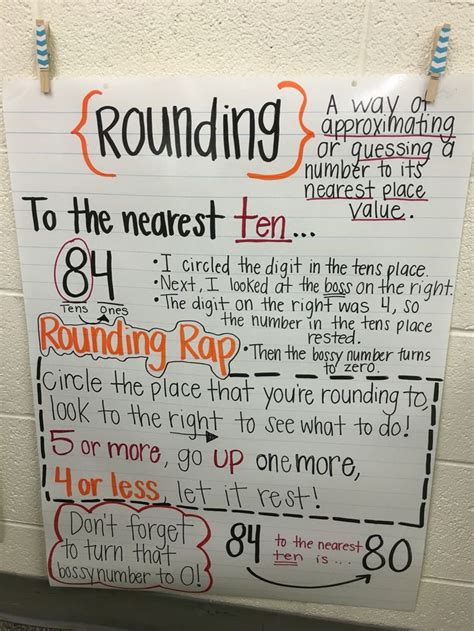 {Rounding}
A way of
approximating
or guessing a
number to its
nearest place
value.
To the nearest ten...
84
Tens Ones
• I circled the digit in the tens place.
• Next, I looked at the boss on the right.
• The digit on the right was 4, so
the number in the tens place
rested.
• Then the bossy number turns
to zero.
Rounding Rap
Circle the place that you're rounding to,
look to the right to see what to do!
5 or more, go UP one more,
4 or less, let it rest!
Don't forget
to turn that
bossy number to 0!
84 to the nearest
ten is... 80